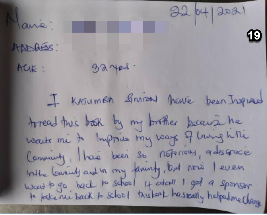 22/04/2021
19
Name:
ADDRESS:
AGE: 32 yrs.
I KATUMBA SIMEON have been Inspired
to read this book by my brother because he
wants me to Improve my ways of living in the
Community, I have been so notorious, a disgrace
in the Community and in my family, but now I even
want to go back to school if atall I get a sponsor
to take me back to school this book has really helped me change